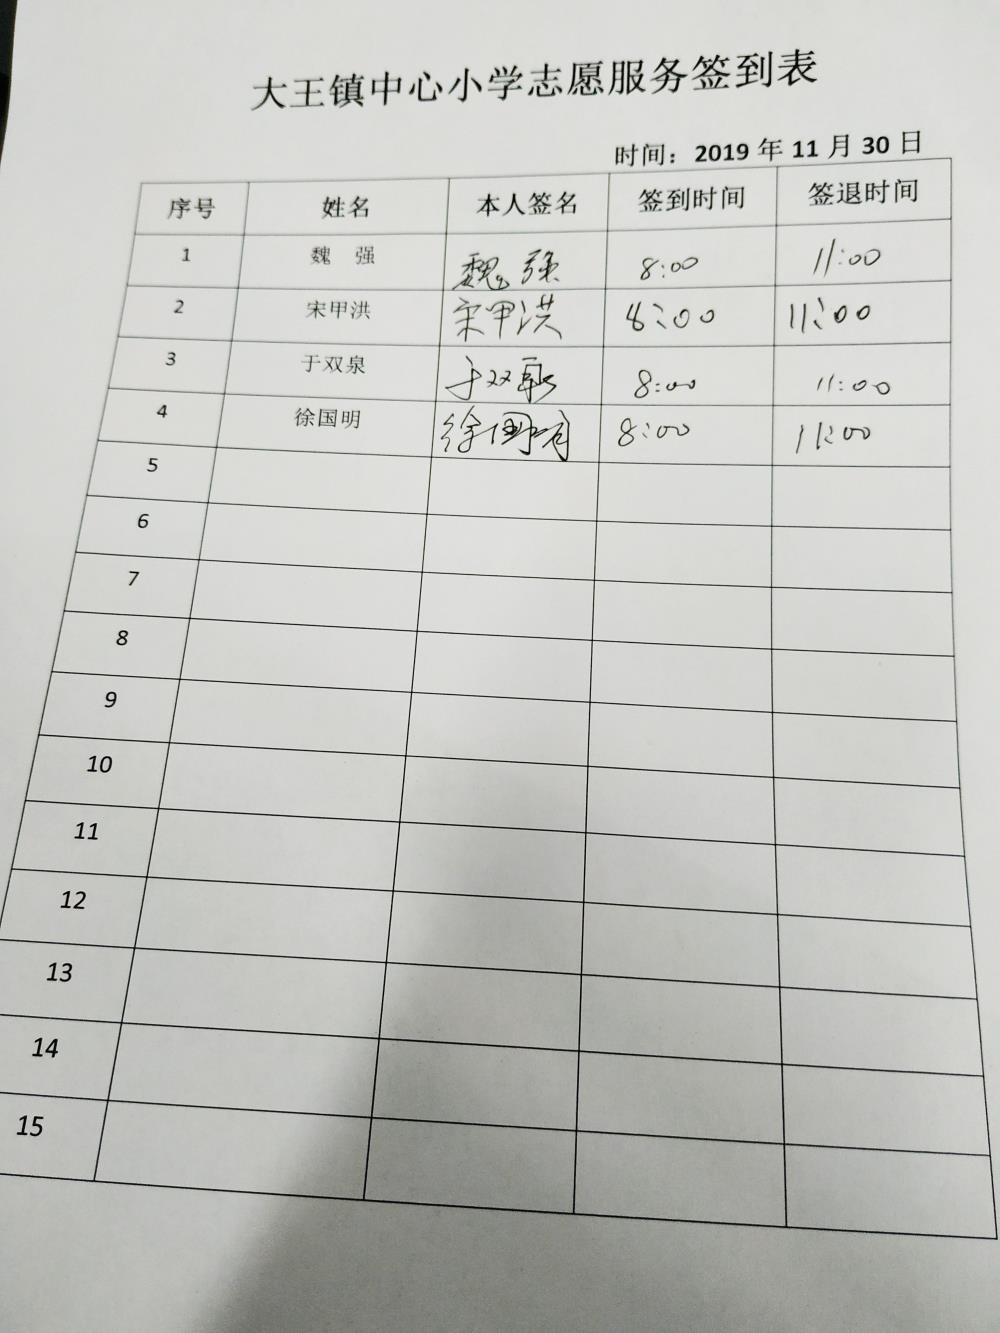 大王镇中心小学志愿服务签到表
时间：2019 年 11 月 30 日
序号 姓名 本人签名 签到时间 签退时间
1 魏 强 魏强 8:00 11:00
2 宋甲洪 宋甲洪 8:00 11:00
3 于双泉 于双泉 8:00 11:00
4 徐国明 徐国明 8:00 11:00
5
6
7
8
9
10
11
12
13
14
15